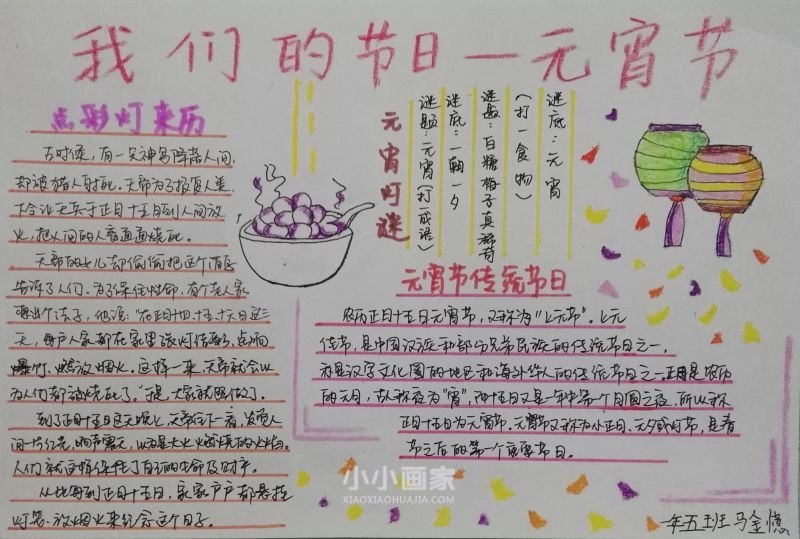 我们的节日—元宵节
点彩灯来历
古时候,有一只神鸟降落人间,
却被猎人射死。天帝为了报复人类,
下令让天兵于正月十五日到人间放
火,把人间的人畜通通烧死。
天帝的女儿却偷偷把这个消息
告诉了人们。为了保住性命,有个老人家
想出个法子,他说:"在正月十四、十五、十六日这三
天,每户人家都在家里张灯结彩、点响
爆竹、燃放烟火。这样一来,天帝就会以
为人们都被烧死了。"于是大家就照做了。
到了正月十五这天晚上,天帝往下一看,发觉人
间一片红光,响声震天,以为是大火燃烧的火焰。
人们就这样保住了自己的生命及财产。
从此每到正月十五日,家家户户都悬挂
灯笼、放烟火来纪念这个日子。
元宵灯谜
谜题:元宵(打一成语)
谜底:一朝一夕
谜题:白糖梅子真稀奇
(打一食物)
谜底:元宵
元宵节传统节日
农历正月十五日元宵节,又称为"上元节",上元
佳节,是中国汉族和部分兄弟民族的传统节日之一,
亦是汉字文化圈的地区和海外华人的传统节日之一。正月是农历
的元月,古人称夜为"宵",而十五日又是一年中第一个月圆之夜,所以称
正月十五为元宵节。元宵节又称为小正月、元夕或灯节,是春
节之后的第一个重要节日。
小小画家
XIAOXIAOHUAJIA.COM
一年五班 马金憶